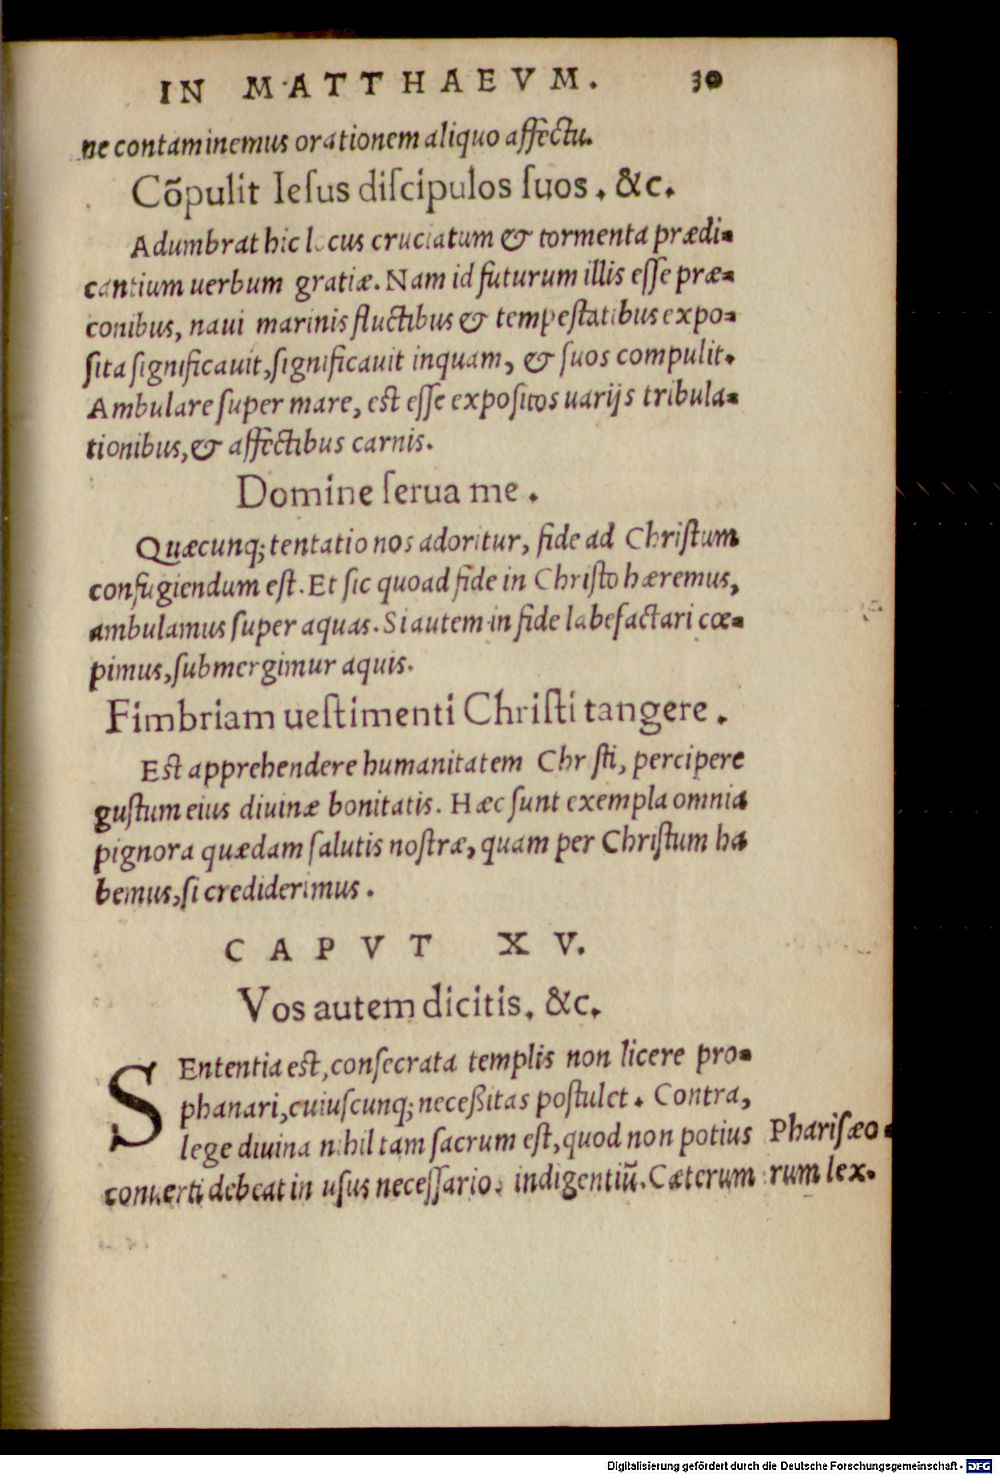 IN MATTHAEVM. 30
ne contaminemus orationem aliquo affectu.
Cõpulit Ieſus diſcipulos ſuos. &c.
Adumbrat hic locus cruciatum & tormenta prædi-
cantium uerbum gratiæ. Nam id futurum illis eſſe præ-
conibus, naui marinis fluctibus & tempeſtatibus expo-
ſita ſignificauit, ſignificauit inquam, & ſuos compulit.
Ambulare ſuper mare, eſt eſſe expoſitos uarijs tribula-
tionibus, & affectibus carnis.
Domine ſerua me.
Quæcunq; tentatio nos adoritur, fide ad Chriſtum
confugiendum eſt. Et ſic quoad fide in Chriſto hæremus,
ambulamus ſuper aquas. Si autem in fide labefactari cœ-
pimus, ſubmergimur aquis.
Fimbriam ueſtimenti Chriſti tangere.
Eſt apprehendere humanitatem Chriſti, percipere
guſtum eius diuinæ bonitatis. Hæc ſunt exempla omnia
pignora quædam ſalutis noſtræ, quam per Chriſtum ha
bemus, ſi crediderimus.
CAPVT XV.
Vos autem dicitis. &c.
SEntentia eſt, conſecrata templis non licere pro-
phanari, cuiuſcunq; neceßitas poſtulet. Contra,
lege diuina nihil tam ſacrum eſt, quod non potius
conuerti debeat in uſus neceſſarios indigentiũ. Cæterum
Phariſæo-
rum lex.
Digitalisierung gefördert durch die Deutsche Forschungsgemeinschaft - DFG